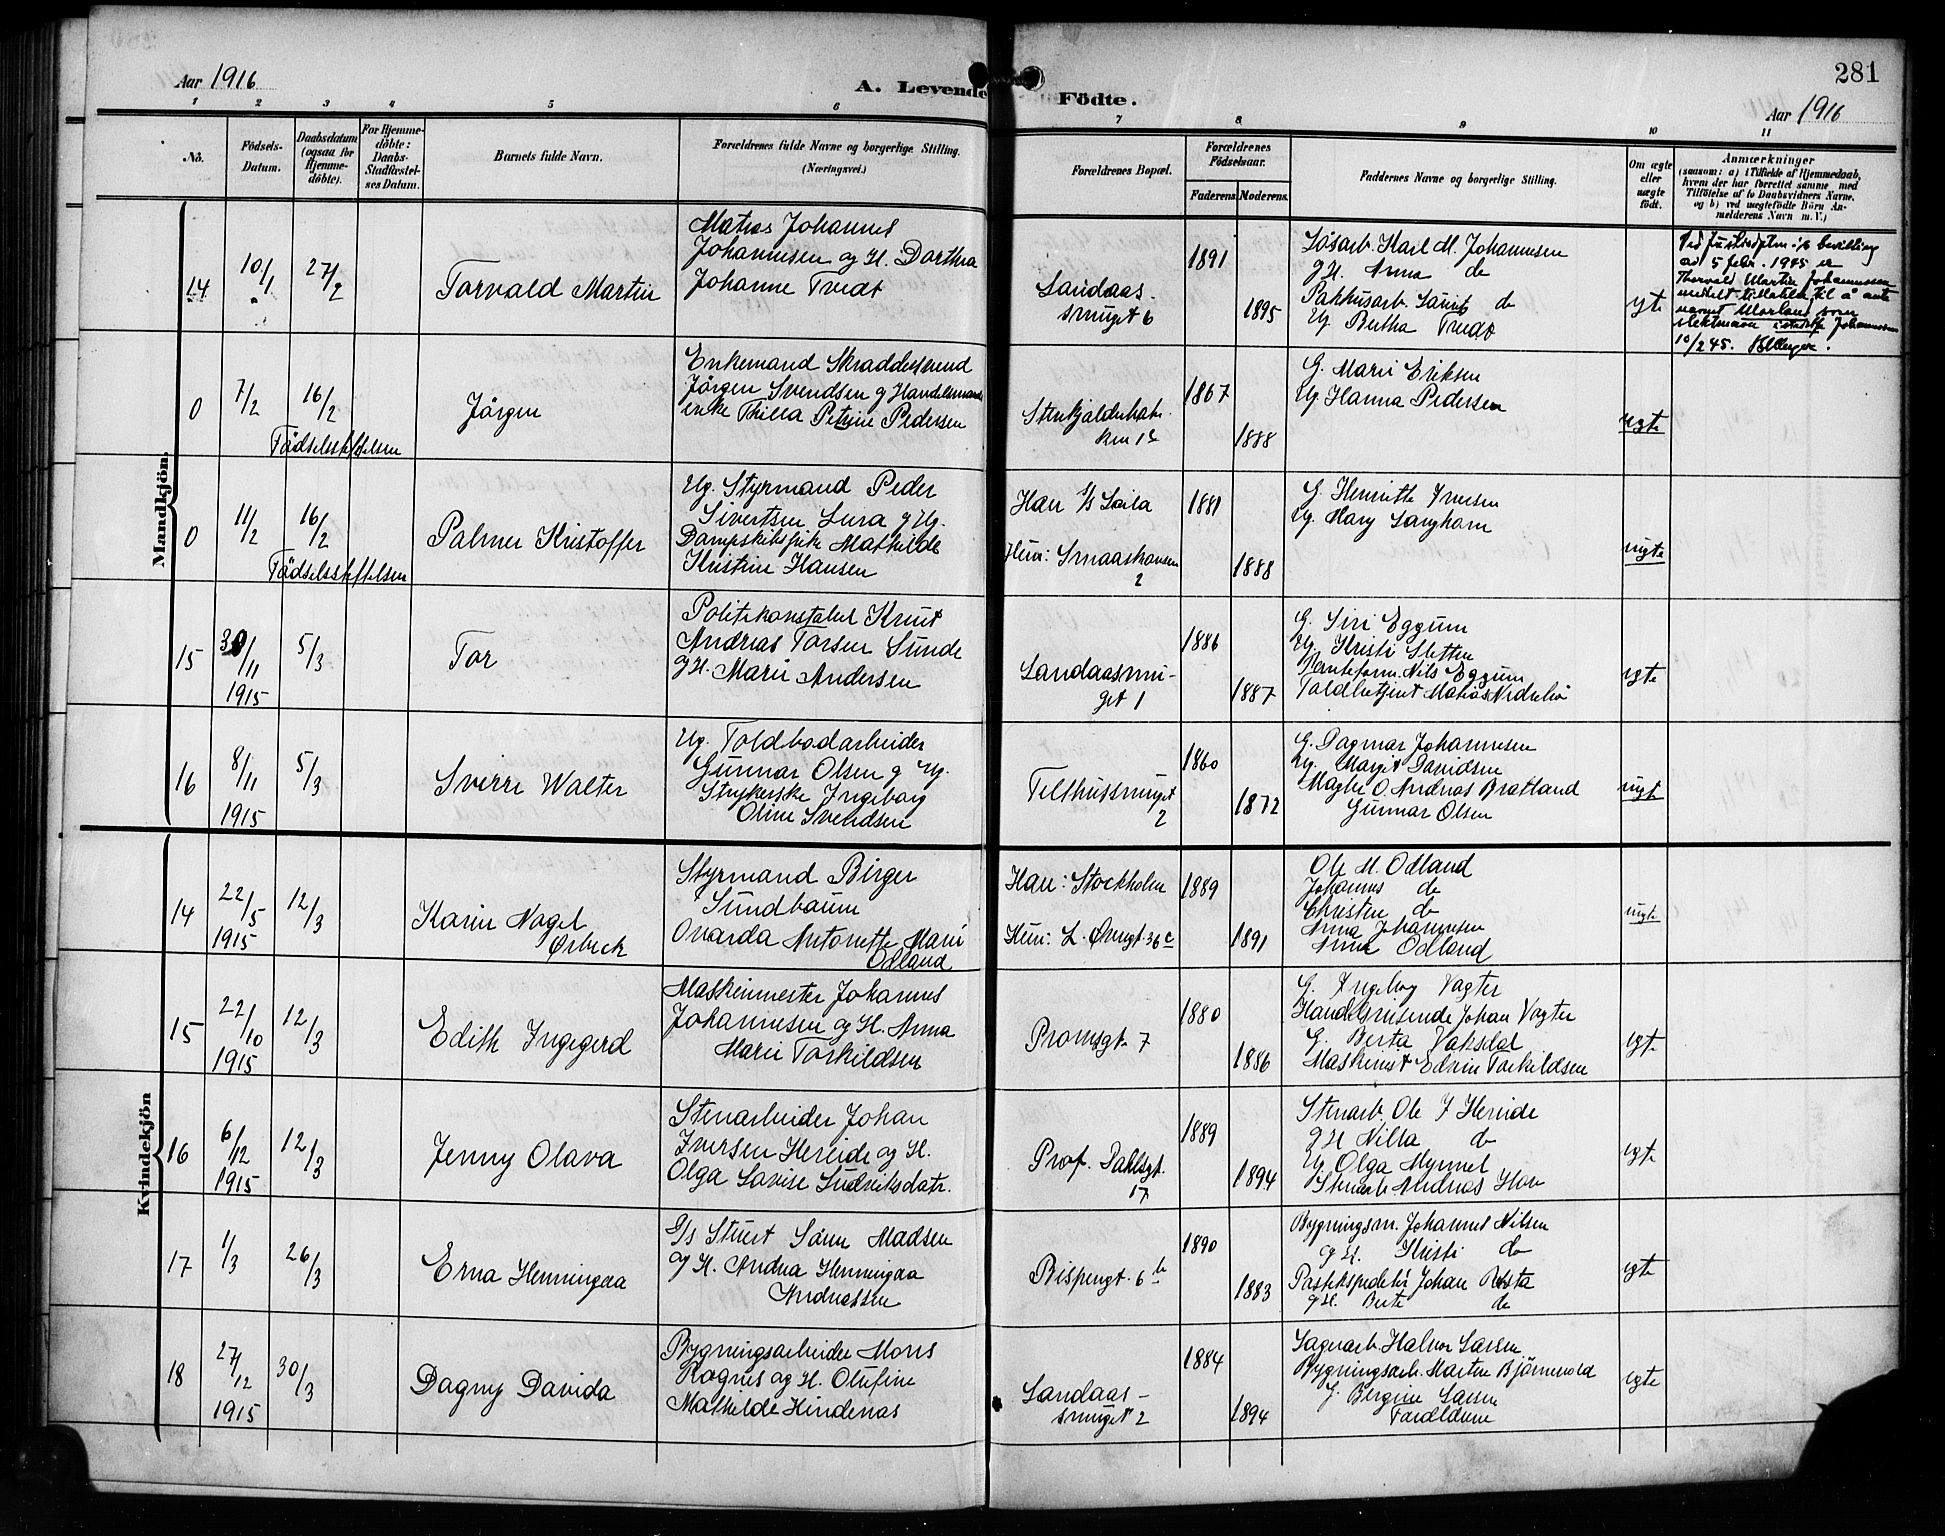 Aar 1916
A. Levende Födte.
281
Aar 1916
1 2 3 4 5 6 7 8 9 10 11
No.
Födsels-
Datum.
Daabsdatum
(ogsaa for
Hjemme-
döbte).
For Hjemme-
döbte:
Daabs-
Stadfæstel-
ses Datum.
Barnets fulde Navn.
Forældrenes fulde Navne og borgerlige Stilling.
(Næringsvei.)
Forældrenes Bopæl.
Forældrenes
Födselsaar.
Faderens. Moderens.
Faddernes Navne og borgerlige Stilling.
Om ægte
eller
uægte
født.
Anmærkninger
(saasom: a) i Tilfælde af Hjemmedaab,
hvem der har forrettet samme, med
Tilföielse af to Daabsvidners Navne,
og b) ved uægtefödte Börn An-
melderens Navn m. V.)
Mandkjön.
14
10/1
27/2
Torvald Martin
Matias Johannes
Johannesen og H. Dorthea
Johanne Tvedt
Sandaas-
smuget 6
1891
1895
Løsarb. Karl M. Johannesen
g H. Anna do
Pakhusarb. Lauritz do
Ug Bertha Tvedt
egte
Ved Justisdptm. bevilling
av 5 febr. 1945 er
Thorvald Martin Johannessen
meddelt tillatelse til å anta
navnet Morland som
slektsnavn istedfor Johannessen
10/2 45.
0
7/2
16/2
Födselsstiftelsen
Jörgen
Enkemand Skräddersvend
Jörgen Svendsen g Handelsmands
enke Thilla Petrine Pedersen
1867
1888
G. Marie Eriksen
Ug Hanna Pedersen
uegte
0
11/2
16/2
Födselsstiftelsen
Palmer Kristoffer
Ug. Styrmand Peder
Sivertsen Lura g Ug.
Dampskibspike Mathilde
Kristine Hansen
Han S/S Laila
Hun: Smaaskansen
2
1881
1888
G. Henriette Iversen
Ug. Mary Langham
uegte
15
30/11
1915
5/3
Tor
Politikonstabel Knut
Andreas Torsen Sunde
g H. Marie Andersen
Sandaassmu-
get 1
1886
1887
G. Siri Eggum
Ug. Kristi Sletten
Nils Eggum
Toldbetjent Matias Nedrebö
egte
16
8/11
1915
5/3
Sverre Walter
Ug. Toldbodarbeider
Gunnar Olsen g Ug.
Strykerske Ingeborg
Oline Svendsen
Telthussmuget
2
1860
1872
G. Dagmar Johannesen
Ug. Margit Davidsen
Mægler O. Andreas Bratland
Gunnar Olsen
uegte
Kvindekjön
14
22/5
1915
12/3
Karin Nagel
Ørbeck
Styrmand Birger
Sundbaum
Ovarda Antonette Marie
Odland
Han: Stockholm
Hun: L. Øvregt. 36 c
1889
1891
Ole M. Odland
Johannes do
Christen do
Anna Johannesen
Anna Odland
uegte
15
22/10
1915
12/3
Edith Ingegerd
Maskinmester Johannes
Johannesen og H. Anna
Marie Torkildsen
Promsgt. 7
1880
1886
G. Ingeborg Vagter
Handelsreisende Johan Vagter
G. Berta Vaksdal
Maskinist Edvin Torkildsen
egte
16
6/12
1915
12/3
Jenny Olava
Stenarbeider Johan
Iversen Hereide og H.
Olga Lovise Ludviksdatr.
Prof. Dahlsgt.
17
1889
1894
Stenarb. Ole J Hereide
g H Nilla do
Ug Olga Myrmel
Stenarb. Andreas Hov
egte
17
1/3
26/3
Erna Henningaa
D/s Stuert Sönn Madsen
og H. Andrea Henningaa
Andreassen
Bispengt. 6 b
1890
1883
Bygningsm. Johannes Nilsen
og H. Kristi do
Postekspeditör Johan
g H. Berte do
egte
18
27/12
1915
30/3
Dagny Davida
Bygningsarbeider Mons
Rognes og H. Olufine
Mathilde Hindenas
Sandaas-
smuget 2
1884
1894
Sagarb. Halvor Larsen
Bygningsarb. Marten Bjørnevold
G. Bergine Larsen
Foreldrene
egte